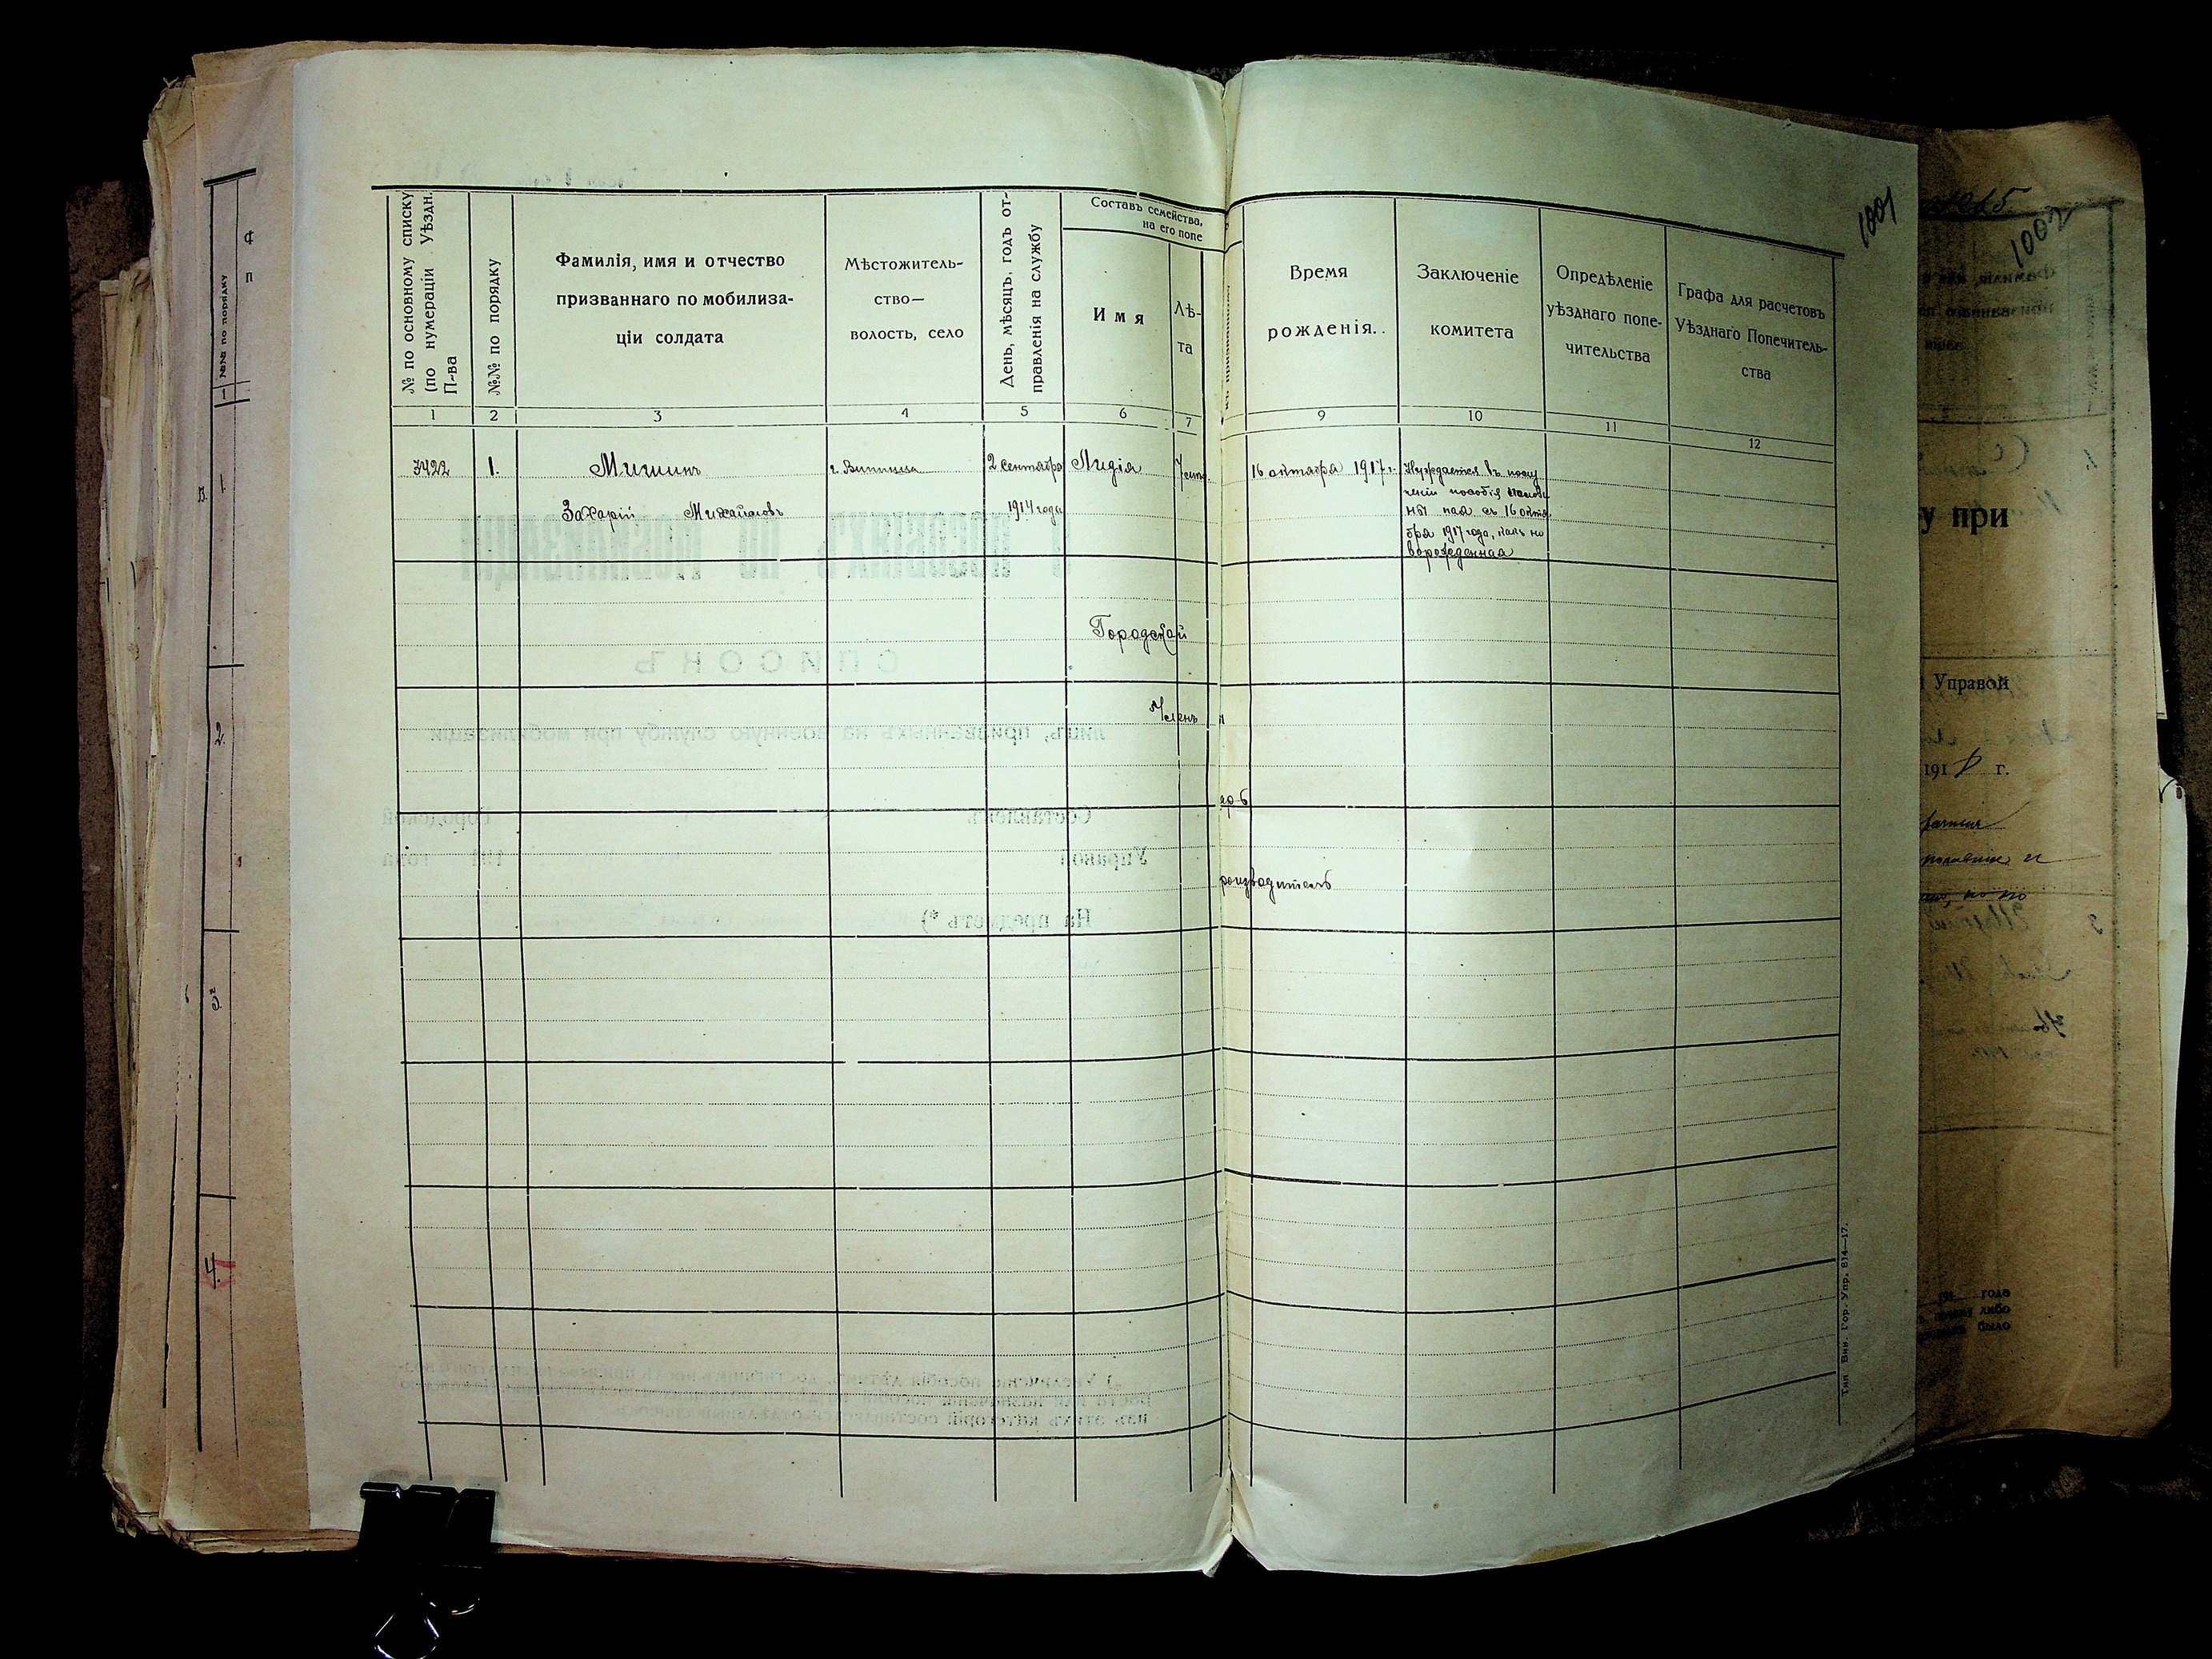 1001
1002
№ по основному списку
(по нумераціи Уѣздн.
П-ва
№№ по порядку
Фамилія, имя и отчество
призваннаго по мобилиза-
ціи солдата
Мѣстожитель-
ство—
волость, село
День, мѣсяцъ, годъ от-
правленія на службу
Составъ семейства,
на его попе
Имя
Лѣ-
та
Время
рожденія..
Заключеніе
комитета
Опредѣленіе
уѣзднаго попе-
чительства
Графа для расчетовъ
Уѣзднаго Попечитель-
ства
1 2 3 4 5 6 7 9 10 11 12
3422 1. Мишинъ г. Винница 2 сентября Лидія 16 октября 1917 г. Нуждается въ полу
Захарій Михайловъ 1914 года
ченіи пособія
ны пая съ 16 октя
бря 1917 года, какъ но
ворожденная
Городской
Членъ
роизводитель
Тип. Вин. Гор. Упр. 814—17.
№№ по порядку
1
1.
2.
4.
у при
Управой
1918 г.
года
либо
было